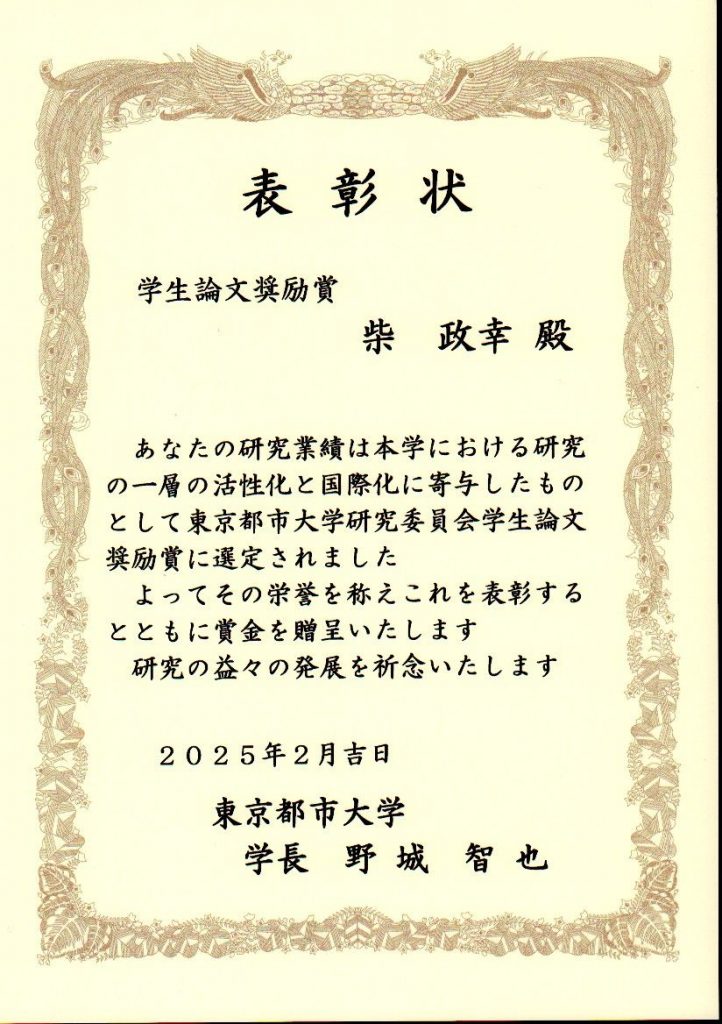 表彰状
学生論文奨励賞
柴　政幸 殿
あなたの研究業績は本学における研究
の一層の活性化と国際化に寄与したもの
として東京都市大学研究委員会学生論文
奨励賞に選定されました
よってその栄誉を称えこれを表彰する
とともに賞金を贈呈いたします
研究の益々の発展を祈念いたします
２０２５年２月吉日
東京都市大学
学長　野城　智也